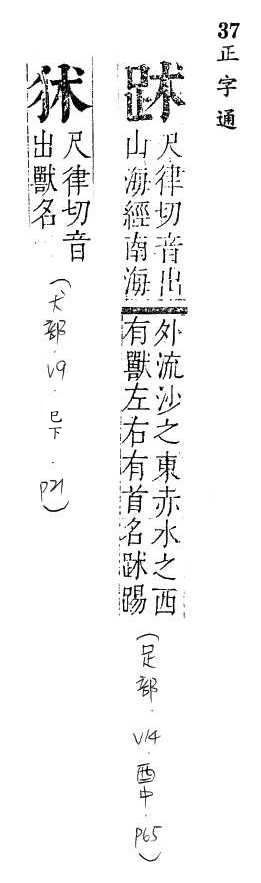 37正字通
跊
尺律切音出
山海經南海
外流沙之東赤水之西
有獸左右有首名跊踢
(足部.V14.酉中.P65)
狋
尺律切音
出獸名
(犬部.V9.巳下.P21)